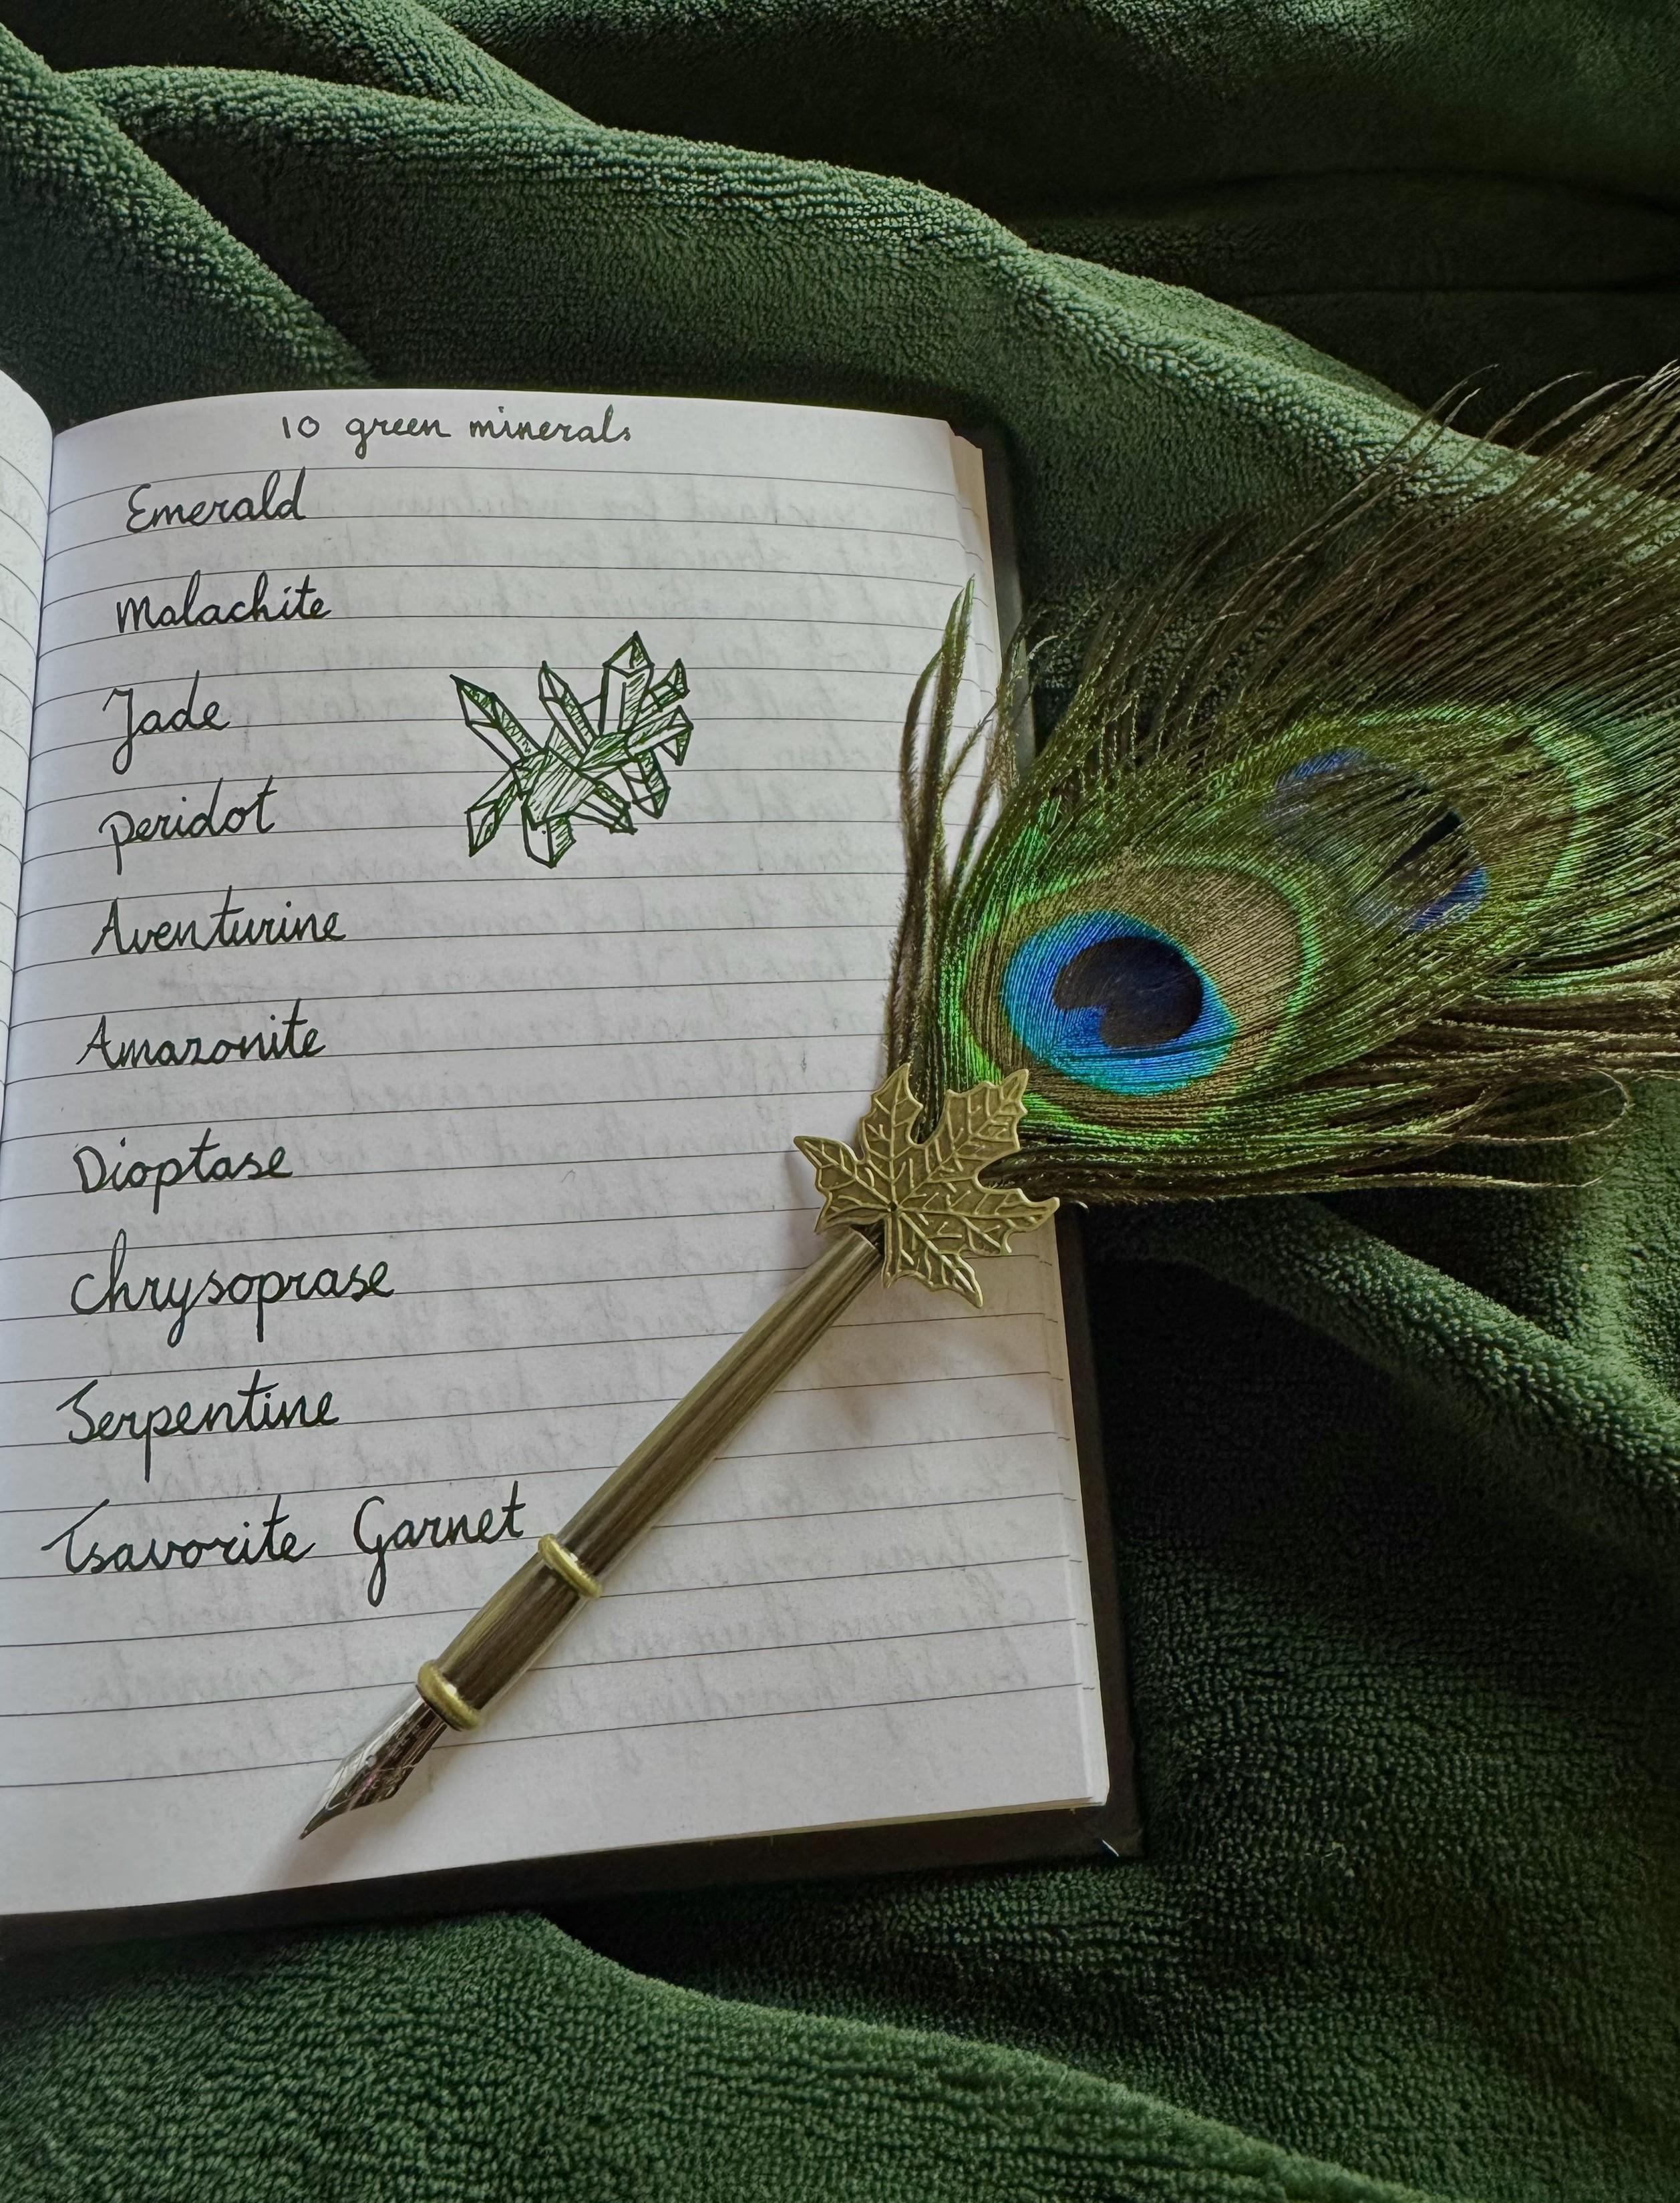 10 green minerals
Emerald
Malachite
Jade
peridot
Aventurine
Amazonite
Dioptase
Chrysoprase
Serpentine
Tsavorite Garnet